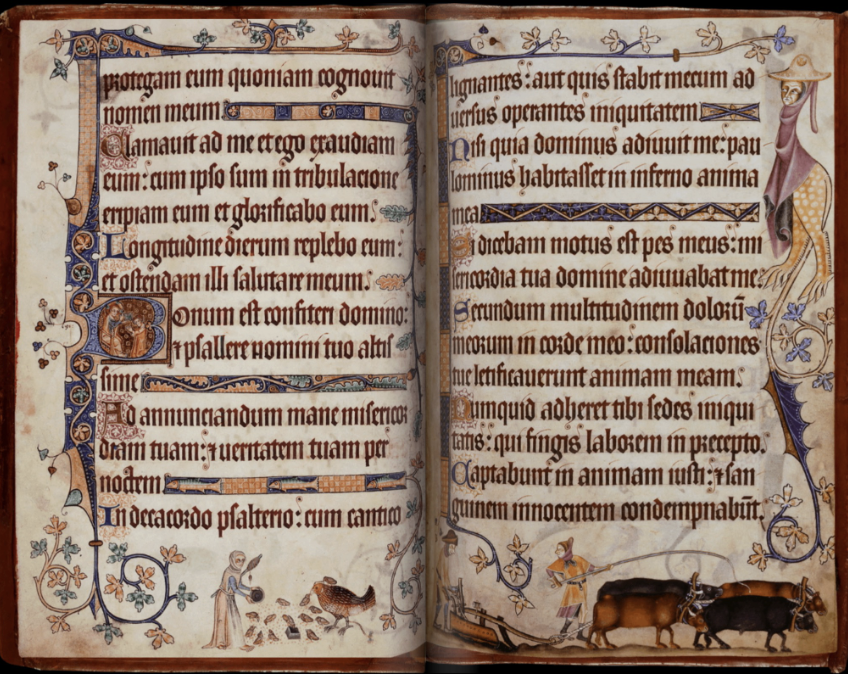 protegam eum quoniam cognouit
nomen meum
Clamauit ad me et ego exaudiam
eum: cum ipso sum in tribulacione
eripiam eum et glorificabo eum.
Longitudine dierum replebo eum:
et ostendam illi salutare meum.
Bonum est confiteri domino:
⁊ psallere nomini tuo altis
sime
Ad annunciandum mane misericor
diam tuam: ⁊ ueritatem tuam per
noctem
In decacordo psalterio: cum cantico
lignantes: aut quis stabit mecum ad
uersus operantes iniquitatem
Nisi quia dominus adiuuit me: pau
lominus habitasset in inferno anima
mea
Si dicebam motus est pes meus: mi
sericordia tua domine adiuuabat me
Secundum multitudinem dolorū
meorum in corde meo: consolaciones
tue letificauerunt animam meam.
Numquid adheret tibi sedes iniqui
tatis: qui fingis laborem in precepto.
Captabunt in animam iusti: ⁊ san
guinem innocentem condempnabūt.